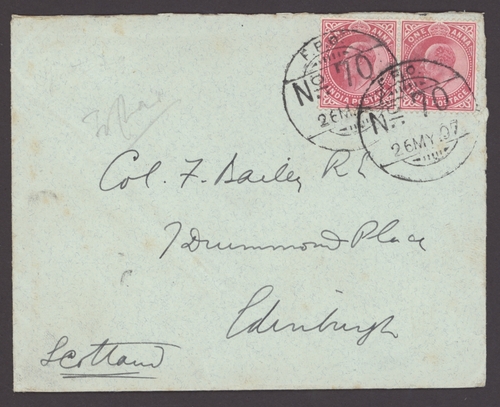 ONE ANNA
INDIA POSTAGE
POSTAGE
F.P.O.
No. 10
26 MY
F.P.O.
No. 10
26 MY 07
Col. F. Bailey R.E
7 Drummond Place
Edinburgh
Scotland